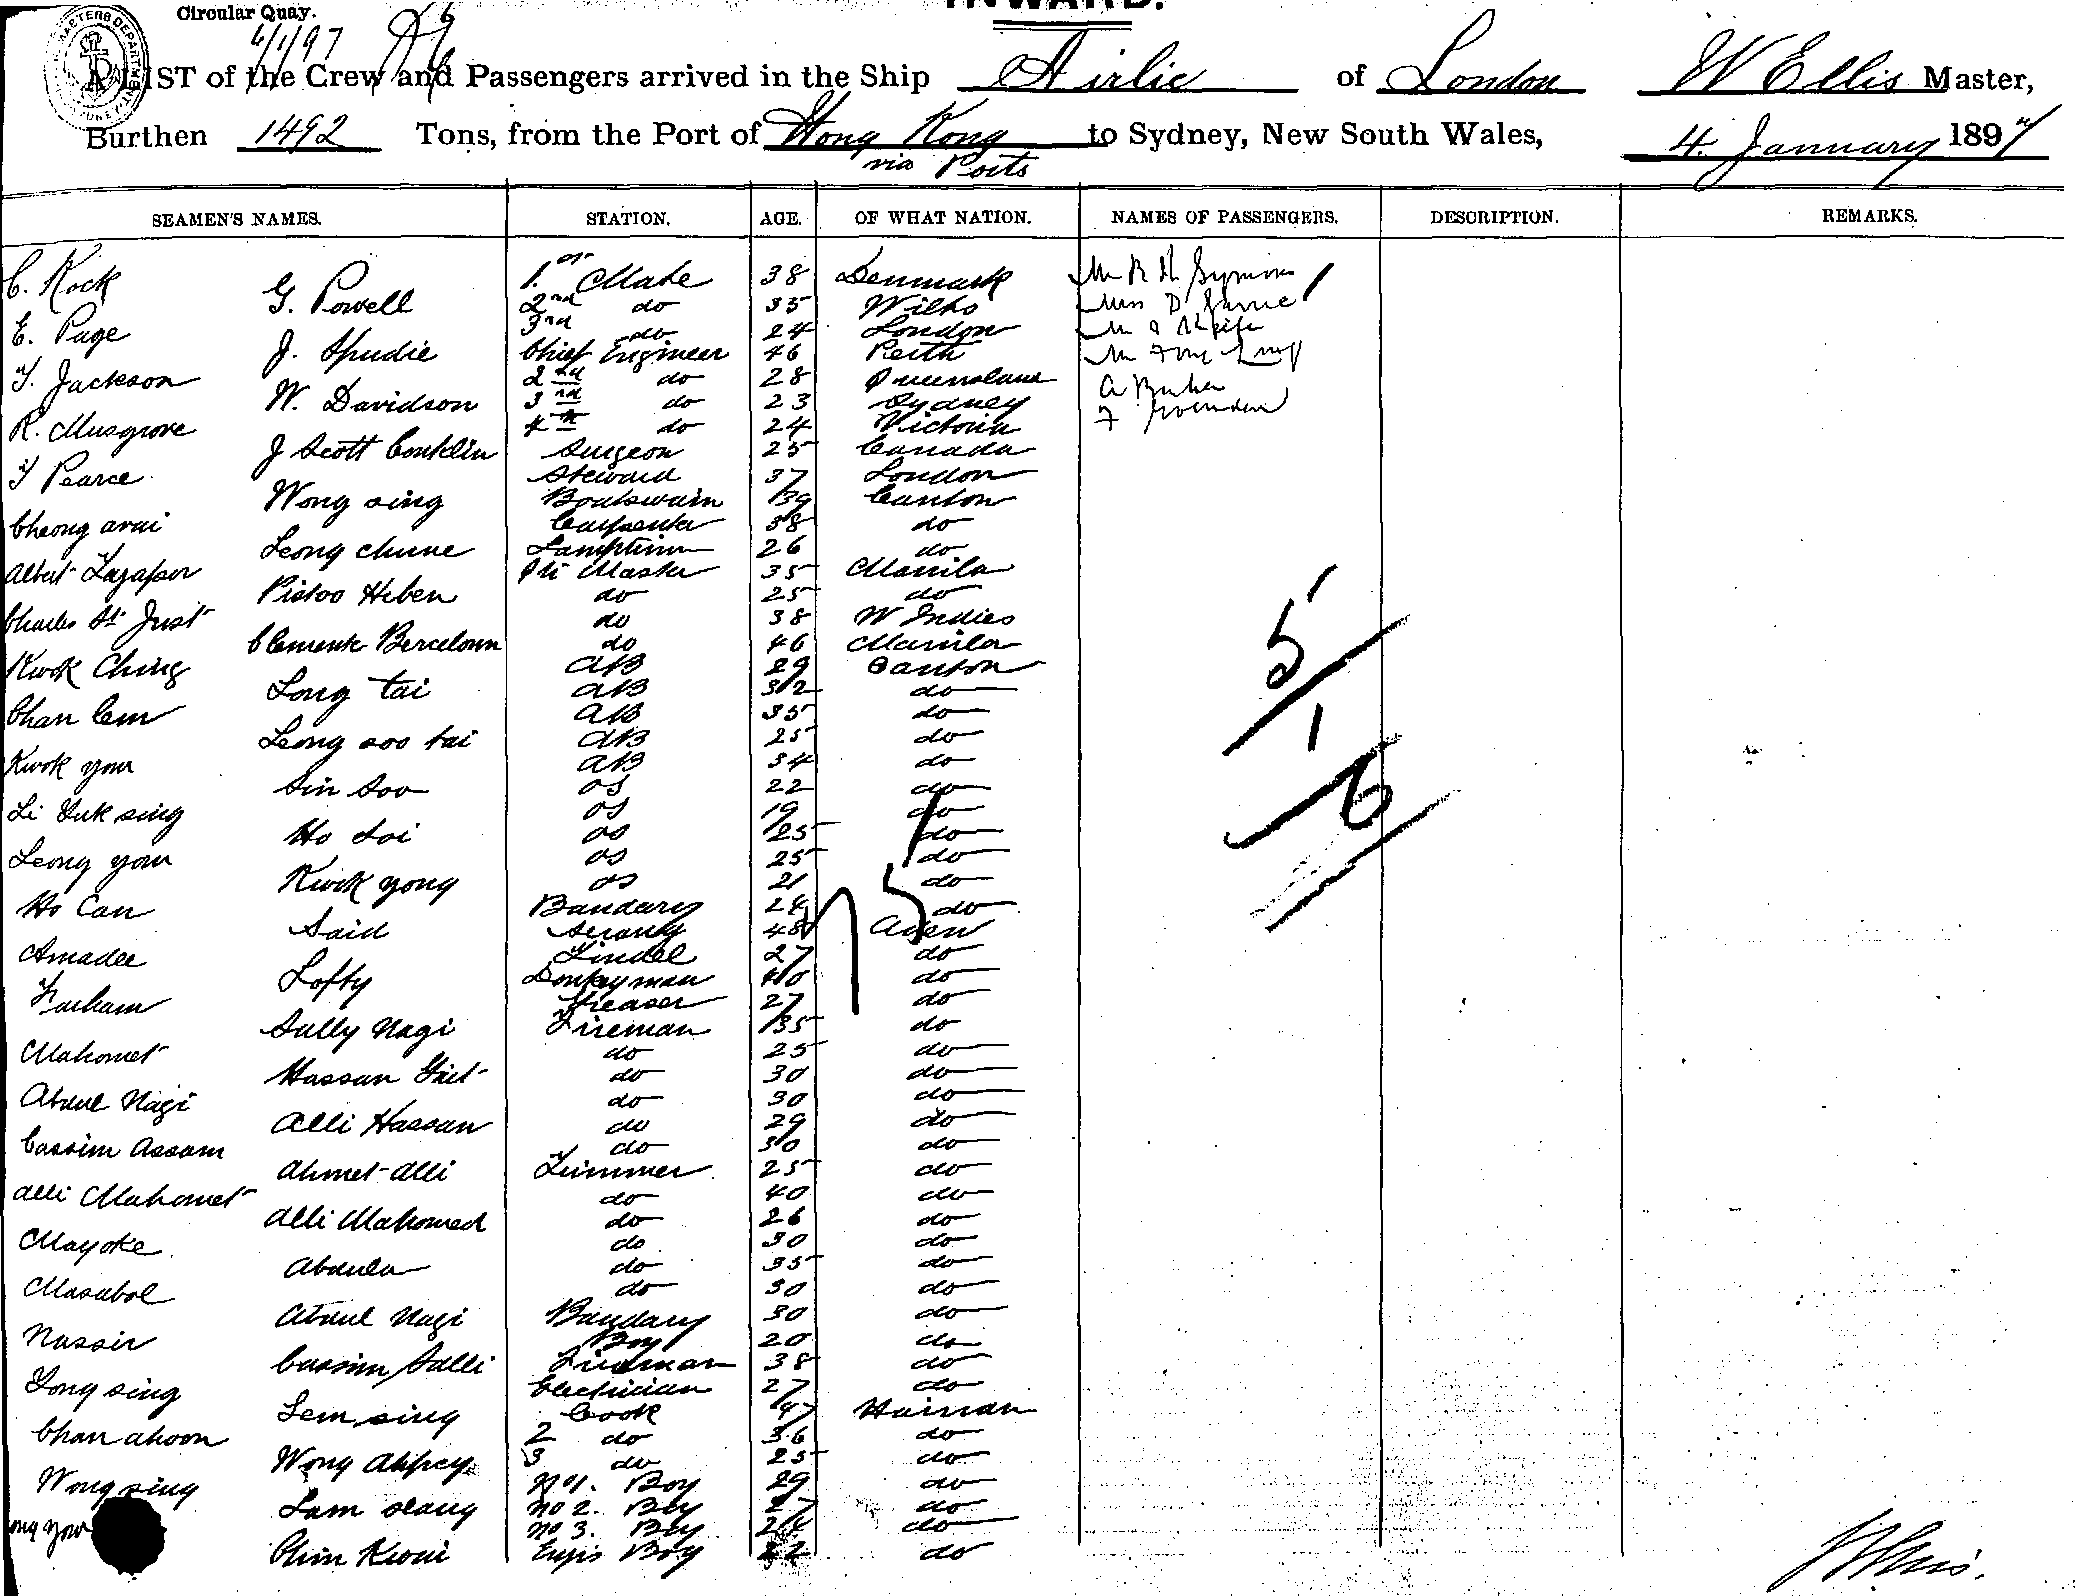 INWARD.
Circular Quay.
6/1/97
A LIST of the Crew and Passengers arrived in the Ship Airlie of London W Ellis Master,
Burthen 1492 Tons, from the Port of Hong Kong to Sydney, New South Wales, 4. January 1897
via Ports
SEAMEN'S NAMES. STATION. AGE. OF WHAT NATION. NAMES OF PASSENGERS. DESCRIPTION. REMARKS.
C. Kock 1st Mate 38 Denmark Mr R H
G. Powell 2nd do 35 Wilts Miss D
E. Page 3rd do 24 London
J. Spudie Chief Engineer 46 Perth
T. Jackson 2nd do 28 Queensland
W. Davidson 3rd do 23 Sydney
R. Musgrove 4th do 24 Victoria
J Scott Conklin Surgeon 25 Canada
T Pearce Steward 37 London
Wong sing Boatswain 39 Canton
Cheong Carpenter 38 do
Leong chune Lamptrim 26 do
Albert Master 35 Manila
Pistoo Heben do 25 do
Charles St Just do 38 W Indies
Clemente do 46 Manila
Kwok Ching AB 29 Canton
Long tai AB 32 do
Chan Cem AB 35 do
Leong soo tai AB 25 do
Kwok you AB 34 do
Sin Soo OS 22 do
Li Yuk sing OS 19 do
Ho Soi OS 25 do
Leong you OS 25 do
Kwok yong OS 21 do
Ho Can Bandary 24 do
Said Serang 48 Aden
Amadee Tindel 27 do
Lofty Donkeyman 40 do
Farham Greaser 27 do
Sully Nagi Fireman 35 do
Mahomet do 25 do
Hassan do 30 do
Abdul Nagi do 30 do
Alli Hassan do 29 do
Cassim Assam do 30 do
Ahmet Alli Trimmer 25 do
Alli Mahomet do 40 do
Alli Mahomed do 26 do
Mayoke do 30 do
Abdula do 35 do
Masabol do 30 do
Abdul Nagi Bandary 30 do
Nassir Boy 20 do
Cassim Salli Fireman 38 do
Yong sing Electrician 27 do
Lem sing Cook 47 Hainan
Chan ahoon 2 do 36 do
Wong 3 do 25 do
Wong sing No 1. Boy 29 do
Lam No 2. Boy 27 do
No 3. Boy 24 do
Boy 22 do
5
1
6
75